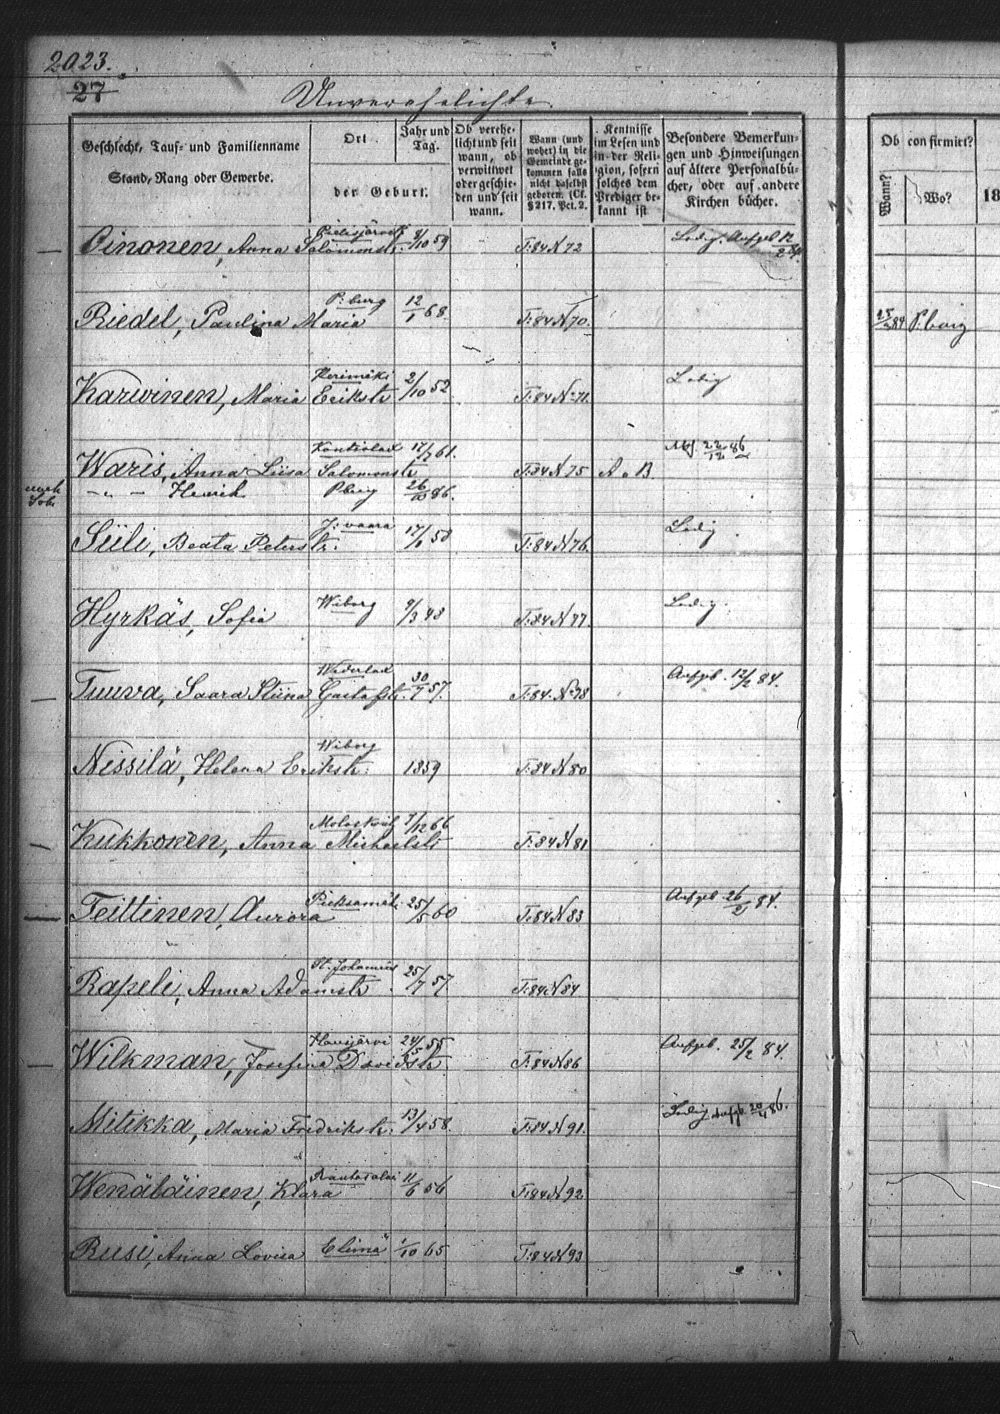 2023.
27
Unverehelichte
Geschlecht, Tauf- und Familienname
Stand, Rang oder Gewerbe.
Ort
der Geburt.
Jahr und
Tag.
Ob verehe-
licht und seit
wann, ob
verwittwet
oder geschie-
den und seit
wann.
Wann (und
woher) in die
Gemeinde ge-
kommen falls
nicht daselbst
geboren. (Cf.
§ 217. Pct. 2.
Kentnisse
im Lesen und
in der Reli-
gion, sofern
solches dem
Prediger be-
kannt ist
Besondere Bemerkun-
gen und Hinweisungen
auf ältere Personalbü-
cher, oder auf andere
Kirchen bücher.
Ob con firmirt?
Wann?
Wo?
18
Oinonen, Anna Salomonstr. Pielisjärvi 9/10 59 T:84 N 72 Ledig. Aufgeb 12/2 84.
Riedel, Paulina Maria P:burg 12/1 68 T:84 N 70. 25/3 84 P.burg
Karwinen, Maria Erikstr Kerimäki 2/10 52 T:84 N 71. Ledig
Waris, Anna Liisa Salomonstr Kontiolax 17/7 61. T:84 N 75 A. B. 22/12 86
— " — Henrik Pburg 26/10 86.
Siili, Beata Peterstr. J:vaara 17/1 58 T:84 N 76. Ledig.
Hyrkäs, Sofia Wiborg 9/3 48 T:84 N 77. Ledig.
Tuuva, Saara Stiina Gustafstr. Wederlax 30/1 57. T:84. N 78 Aufgeb. 12/2 84.
Nissilä, Helena Erikstr: Wiborg 1859 T:84 N 80
Kukkonen, Anna Michaelstr Molaskvij 7/12 66 T:84 N 81
Teittinen, Aurora Pieksamäki 25/5 60 T:84 N 83 Aufgeb 26/2 84.
Rapeli, Anna Adamstr St. Johannis 25/7 57 T:84 N 84
Wilkman, Josefina Davidstr Hausjärvi 24/5 55 T:84 N 86 Aufgeb. 25/2 84.
Mitikka, Maria Fredrikstr. 13/4 58. T:84 N 91. Ledig Aufgb. 20/4 86.
Wenäläinen, Klara Rautasalmi 11/6 56 T:84 N 92.
Rusi, Anna Lovisa Elimä 1/10 65 T:84 N 93